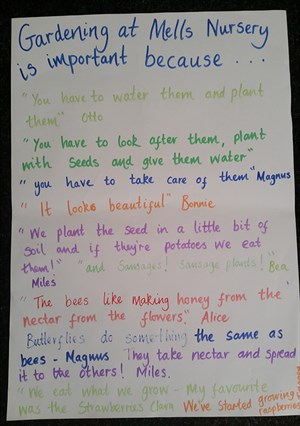 Gardening at Mells Nursery
is important because ...
"You have to water them and plant
them" Otto
"You have to look after them, plant
with seeds and give them water"
"you have to take care of them" Magnus
"It looks beautiful" Bonnie
"We plant the seed in a little bit of
soil and if they're potatoes we eat
them!" "and Sausages! Sausage plants!" Bea
Miles
"The bees like making honey from the
nectar from the flowers". Alice
Butterflies do something the same as
bees - Magnus They take nectar and spread
it to the others! Miles.
"We eat what we grow - My favourite
was the Strawberries Clara We've started growing
raspberries